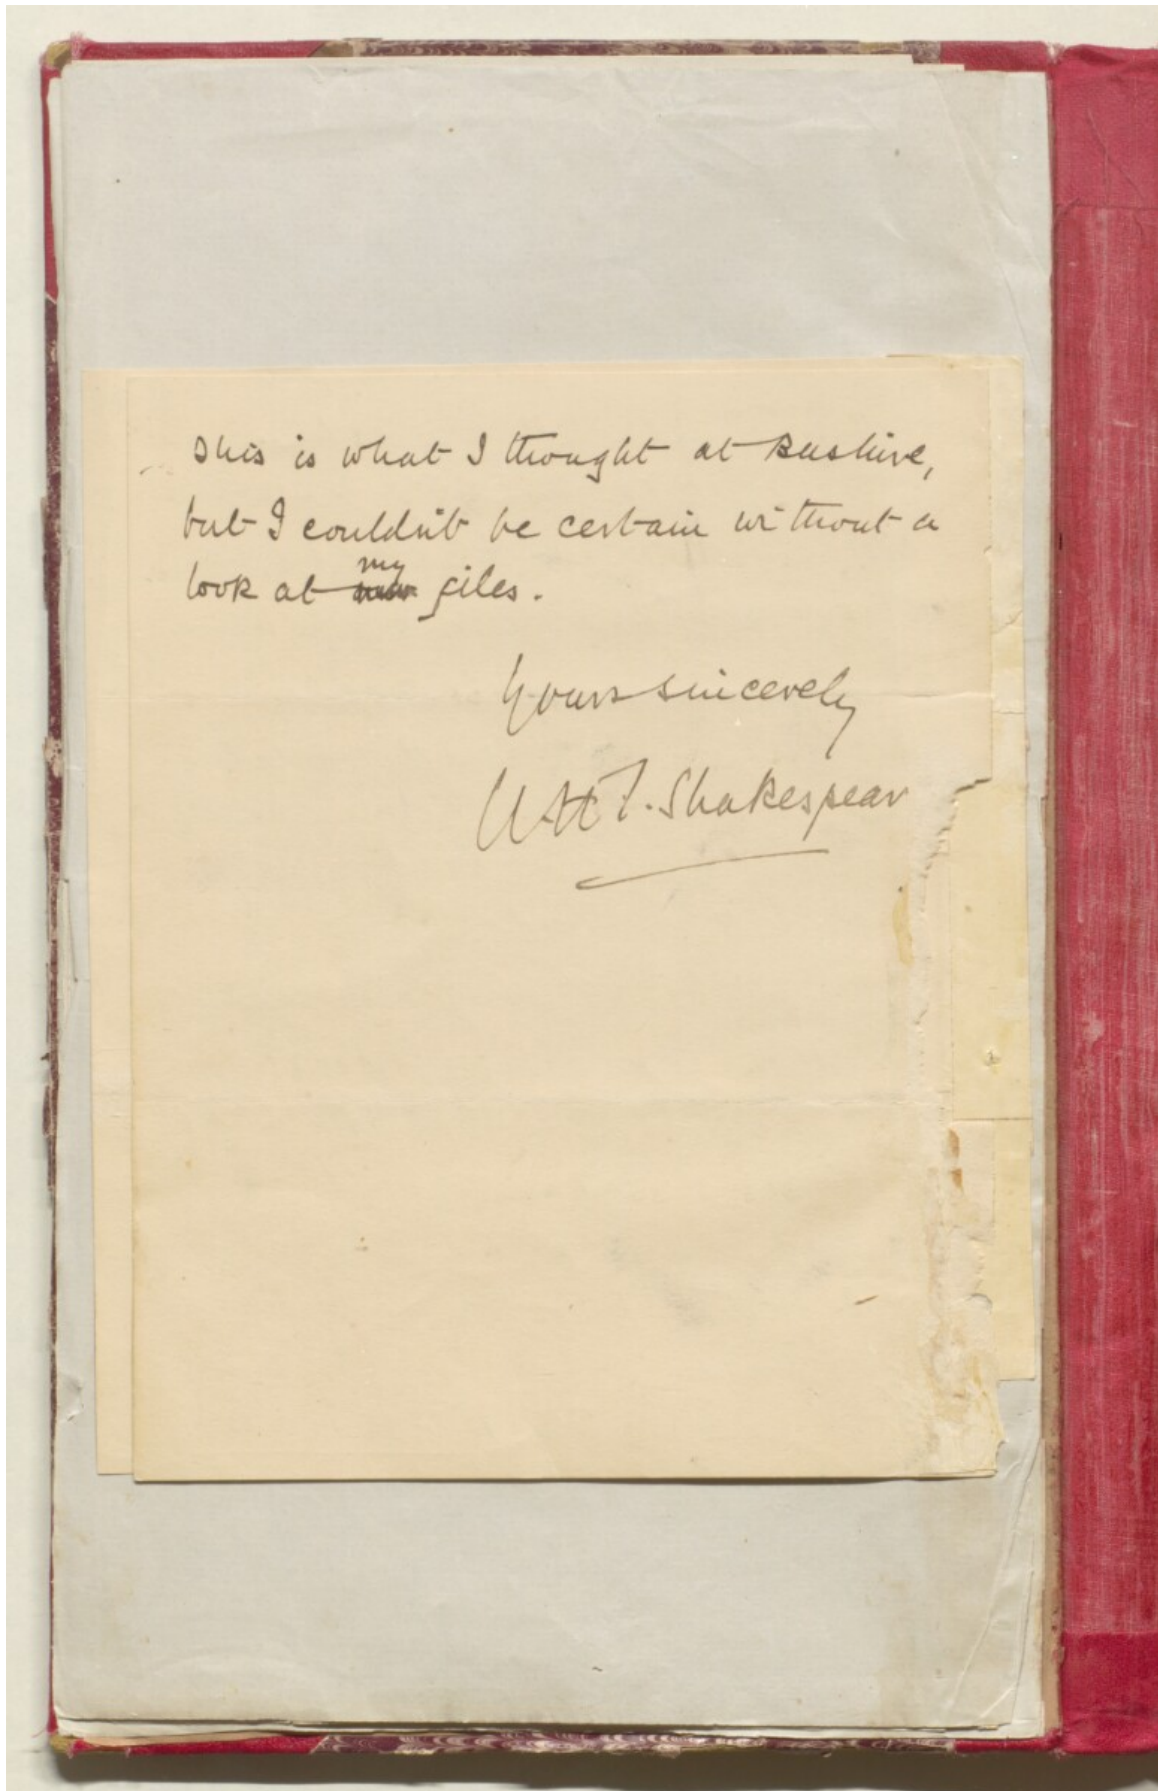 This is what I thought at Bushire,
but I couldn't be certain without a
my
look at files.
Yours sincerely
W.H.I. Shakespear